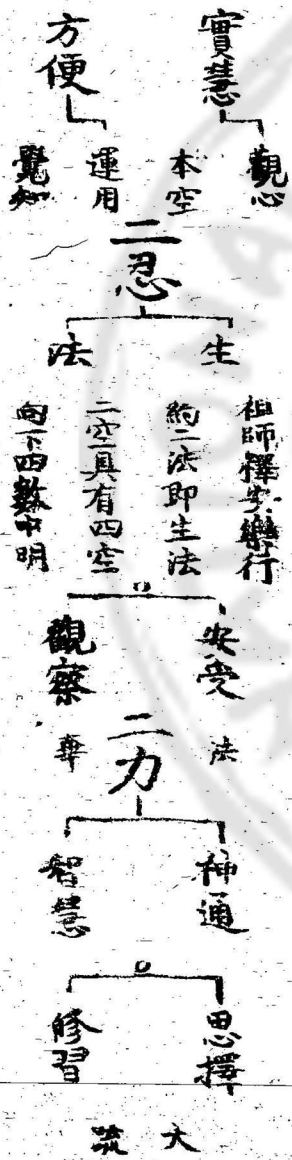 實慧
觀心
本空
方便
運用
覺知
二忍
生
祖師釋安樂行
約二法即生法
法
二空具有四空
向下四數中明
安受
法
觀察
華
二力
神通
智慧
思擇
修習
大
疏